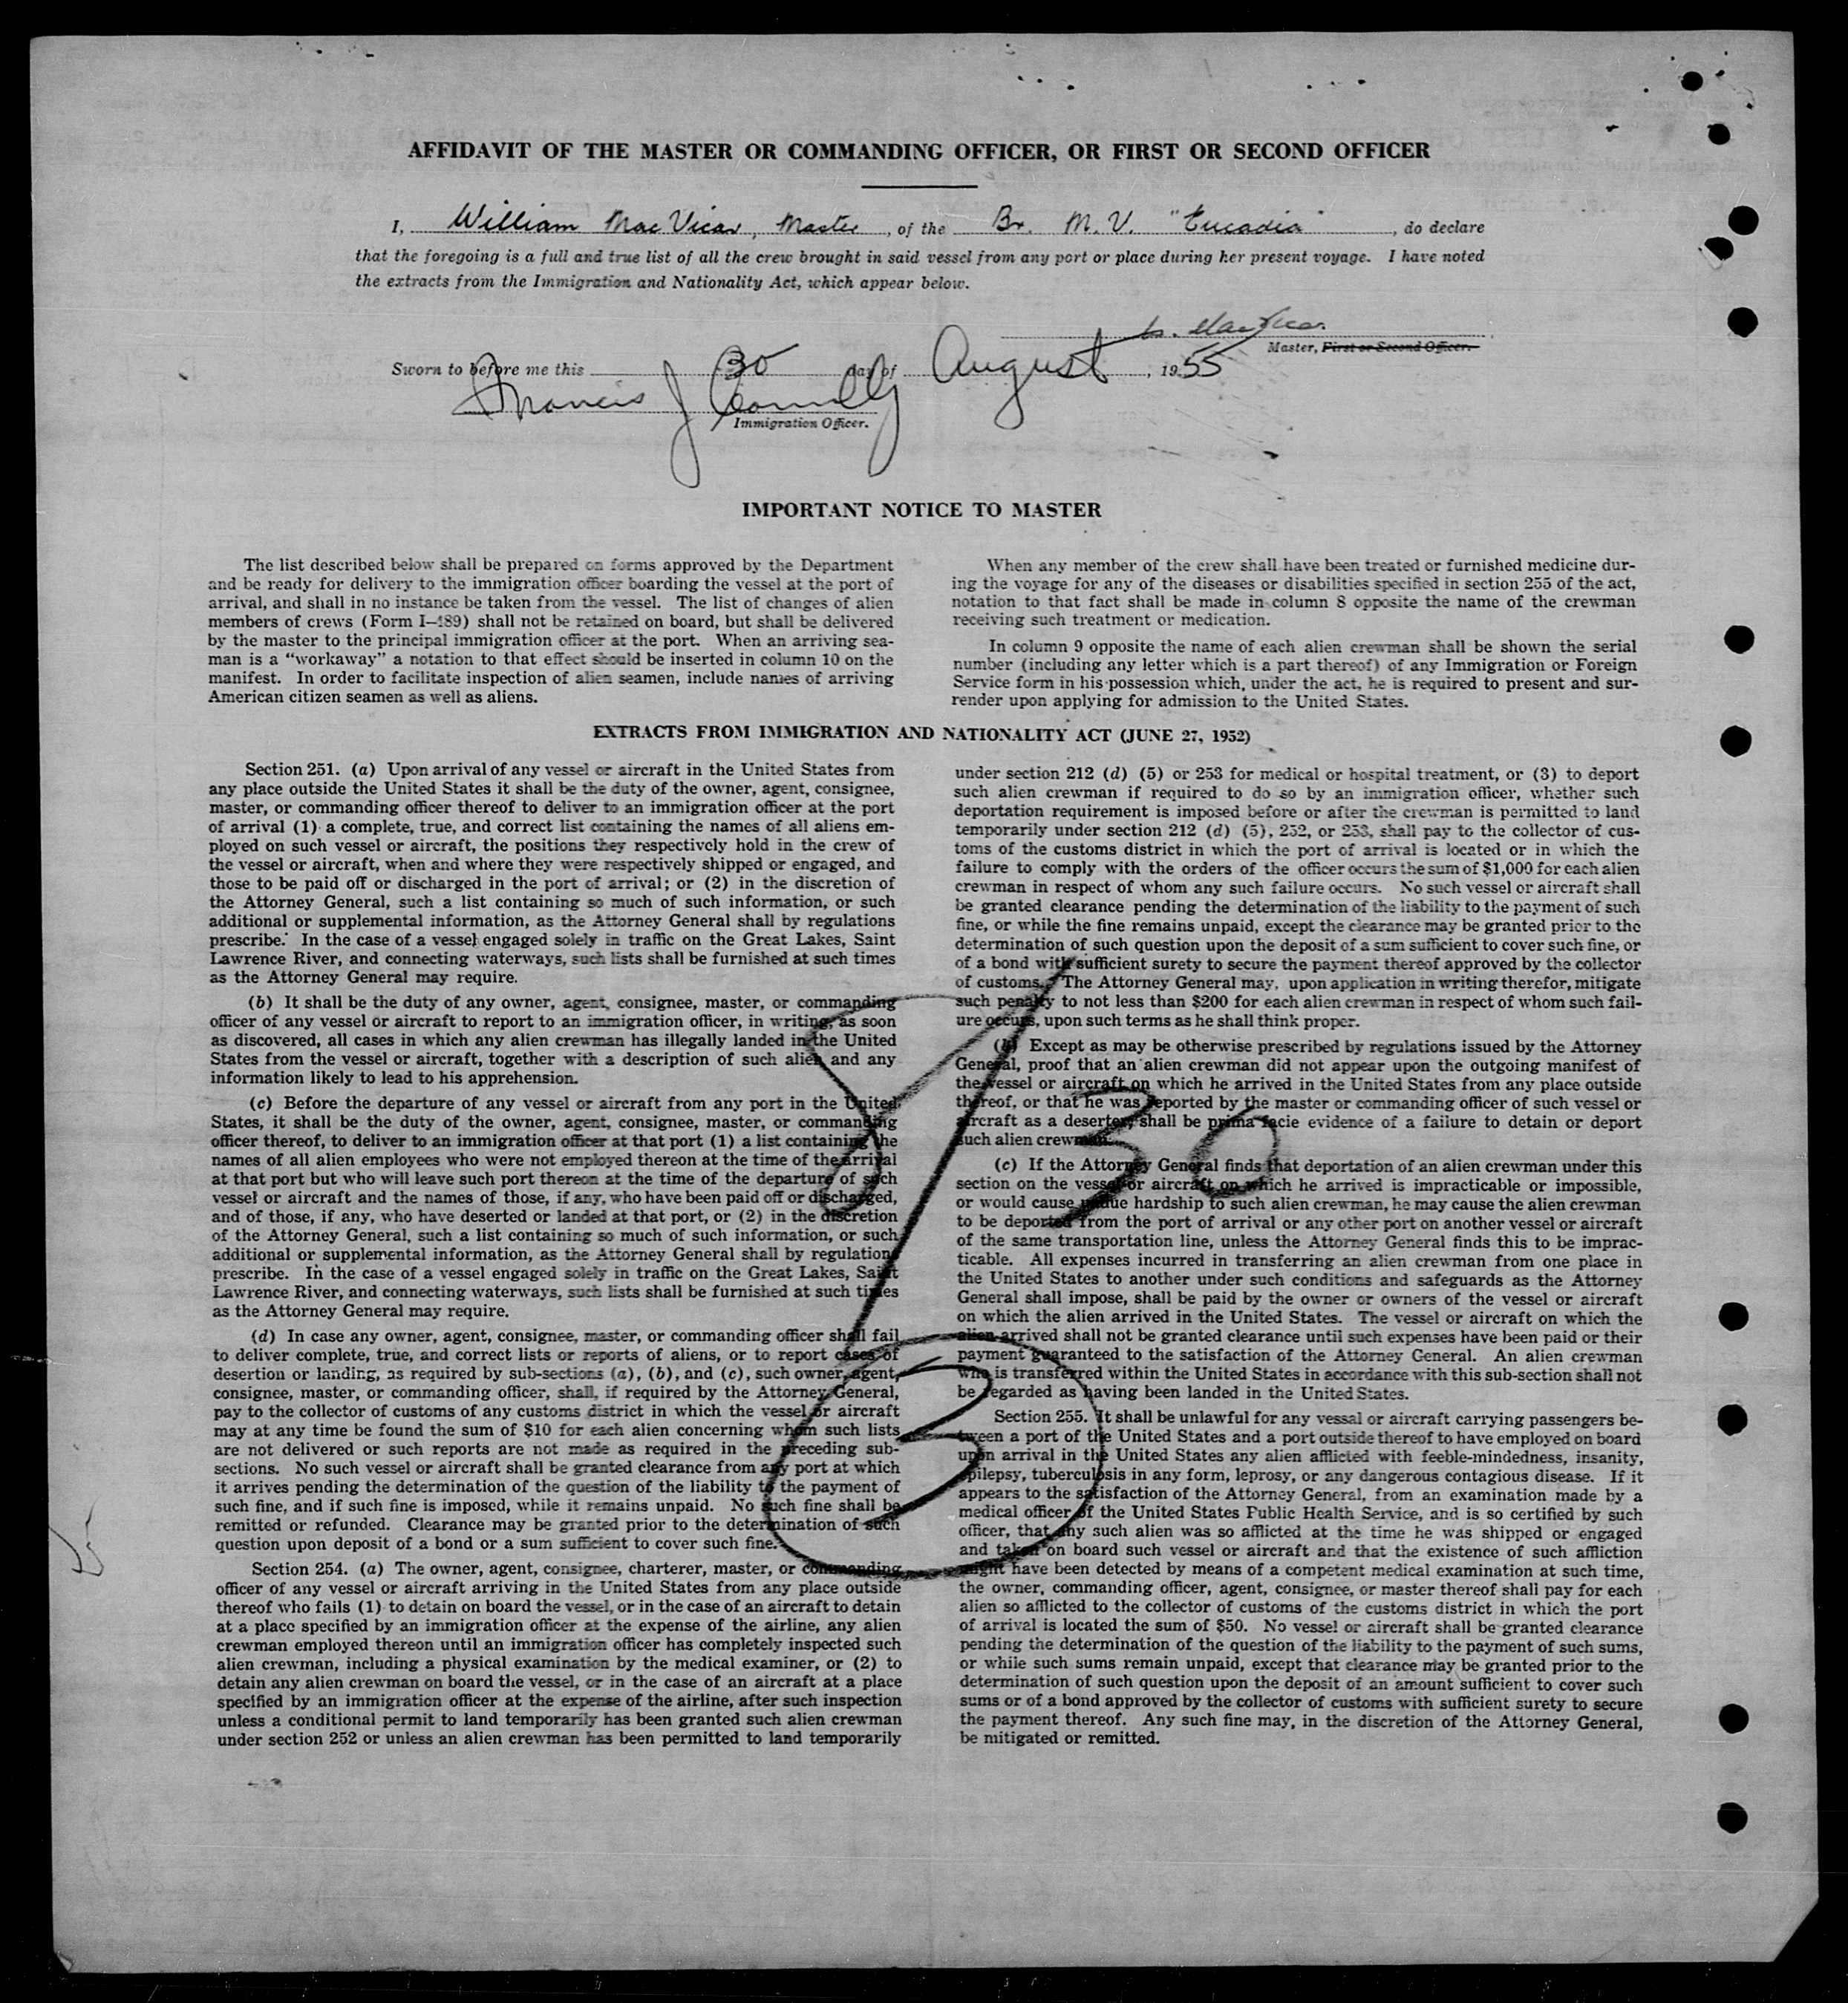 AFFIDAVIT OF THE MASTER OR COMMANDING OFFICER, OR FIRST OR SECOND OFFICER
I, William MacVicar, Master, of the Br. M. V. "Eucadia", do declare
that the foregoing is a full and true list of all the crew brought in said vessel from any port or place during her present voyage. I have noted
the extracts from the Immigration and Nationality Act, which appear below.
W. MacVicar.
Master, First or Second Officer.
Sworn to before me this 30 day of August, 1955
Francis J Connolly
Immigration Officer.
IMPORTANT NOTICE TO MASTER
The list described below shall be prepared on forms approved by the Department
and be ready for delivery to the immigration officer boarding the vessel at the port of
arrival, and shall in no instance be taken from the vessel. The list of changes of alien
members of crews (Form I-489) shall not be retained on board, but shall be delivered
by the master to the principal immigration officer at the port. When an arriving sea-
man is a "workaway" a notation to that effect should be inserted in column 10 on the
manifest. In order to facilitate inspection of alien seamen, include names of arriving
American citizen seamen as well as aliens.
When any member of the crew shall have been treated or furnished medicine dur-
ing the voyage for any of the diseases or disabilities specified in section 255 of the act,
notation to that fact shall be made in column 8 opposite the name of the crewman
receiving such treatment or medication.
In column 9 opposite the name of each alien crewman shall be shown the serial
number (including any letter which is a part thereof) of any Immigration or Foreign
Service form in his possession which, under the act, he is required to present and sur-
render upon applying for admission to the United States.
EXTRACTS FROM IMMIGRATION AND NATIONALITY ACT (JUNE 27, 1952)
Section 251. (a) Upon arrival of any vessel or aircraft in the United States from
any place outside the United States it shall be the duty of the owner, agent, consignee,
master, or commanding officer thereof to deliver to an immigration officer at the port
of arrival (1) a complete, true, and correct list containing the names of all aliens em-
ployed on such vessel or aircraft, the positions they respectively hold in the crew of
the vessel or aircraft, when and where they were respectively shipped or engaged, and
those to be paid off or discharged in the port of arrival; or (2) in the discretion of
the Attorney General, such a list containing so much of such information, or such
additional or supplemental information, as the Attorney General shall by regulations
prescribe. In the case of a vessel engaged solely in traffic on the Great Lakes, Saint
Lawrence River, and connecting waterways, such lists shall be furnished at such times
as the Attorney General may require.
(b) It shall be the duty of any owner, agent, consignee, master, or commanding
officer of any vessel or aircraft to report to an immigration officer, in writing, as soon
as discovered, all cases in which any alien crewman has illegally landed in the United
States from the vessel or aircraft, together with a description of such alien and any
information likely to lead to his apprehension.
(c) Before the departure of any vessel or aircraft from any port in the United
States, it shall be the duty of the owner, agent, consignee, master, or commanding
officer thereof, to deliver to an immigration officer at that port (1) a list containing the
names of all alien employees who were not employed thereon at the time of the arrival
at that port but who will leave such port thereon at the time of the departure of such
vessel or aircraft and the names of those, if any, who have been paid off or discharged,
and of those, if any, who have deserted or landed at that port, or (2) in the discretion
of the Attorney General, such a list containing so much of such information, or such
additional or supplemental information, as the Attorney General shall by regulations
prescribe. In the case of a vessel engaged solely in traffic on the Great Lakes, Saint
Lawrence River, and connecting waterways, such lists shall be furnished at such times
as the Attorney General may require.
(d) In case any owner, agent, consignee, master, or commanding officer shall fail
to deliver complete, true, and correct lists or reports of aliens, or to report cases of
desertion or landing, as required by sub-sections (a), (b), and (c), such owner, agent,
consignee, master, or commanding officer, shall, if required by the Attorney General,
pay to the collector of customs of any customs district in which the vessel or aircraft
may at any time be found the sum of $10 for each alien concerning whom such lists
are not delivered or such reports are not made as required in the preceding sub-
sections. No such vessel or aircraft shall be granted clearance from any port at which
it arrives pending the determination of the question of the liability to the payment of
such fine, and if such fine is imposed, while it remains unpaid. No such fine shall be
remitted or refunded. Clearance may be granted prior to the determination of such
question upon deposit of a bond or a sum sufficient to cover such fine.
Section 254. (a) The owner, agent, consignee, charterer, master, or commanding
officer of any vessel or aircraft arriving in the United States from any place outside
thereof who fails (1) to detain on board the vessel, or in the case of an aircraft to detain
at a place specified by an immigration officer at the expense of the airline, any alien
crewman employed thereon until an immigration officer has completely inspected such
alien crewman, including a physical examination by the medical examiner, or (2) to
detain any alien crewman on board the vessel, or in the case of an aircraft at a place
specified by an immigration officer at the expense of the airline, after such inspection
unless a conditional permit to land temporarily has been granted such alien crewman
under section 252 or unless an alien crewman has been permitted to land temporarily
under section 212 (d) (5) or 253 for medical or hospital treatment, or (3) to deport
such alien crewman if required to do so by an immigration officer, whether such
deportation requirement is imposed before or after the crewman is permitted to land
temporarily under section 212 (d) (5), 252, or 253, shall pay to the collector of cus-
toms of the customs district in which the port of arrival is located or in which the
failure to comply with the orders of the officer occurs the sum of $1,000 for each alien
crewman in respect of whom any such failure occurs. No such vessel or aircraft shall
be granted clearance pending the determination of the liability to the payment of such
fine, or while the fine remains unpaid, except the clearance may be granted prior to the
determination of such question upon the deposit of a sum sufficient to cover such fine, or
of a bond with sufficient surety to secure the payment thereof approved by the collector
of customs. The Attorney General may, upon application in writing therefor, mitigate
such penalty to not less than $200 for each alien crewman in respect of whom such fail-
ure occurs, upon such terms as he shall think proper.
(b) Except as may be otherwise prescribed by regulations issued by the Attorney
General, proof that an alien crewman did not appear upon the outgoing manifest of
the vessel or aircraft on which he arrived in the United States from any place outside
thereof, or that he was reported by the master or commanding officer of such vessel or
aircraft as a deserter, shall be prima facie evidence of a failure to detain or deport
such alien crewman.
(c) If the Attorney General finds that deportation of an alien crewman under this
section on the vessel or aircraft on which he arrived is impracticable or impossible,
or would cause undue hardship to such alien crewman, he may cause the alien crewman
to be deported from the port of arrival or any other port on another vessel or aircraft
of the same transportation line, unless the Attorney General finds this to be imprac-
ticable. All expenses incurred in transferring an alien crewman from one place in
the United States to another under such conditions and safeguards as the Attorney
General shall impose, shall be paid by the owner or owners of the vessel or aircraft
on which the alien arrived in the United States. The vessel or aircraft on which the
alien arrived shall not be granted clearance until such expenses have been paid or their
payment guaranteed to the satisfaction of the Attorney General. An alien crewman
who is transferred within the United States in accordance with this sub-section shall not
be regarded as having been landed in the United States.
Section 255. It shall be unlawful for any vessal or aircraft carrying passengers be-
tween a port of the United States and a port outside thereof to have employed on board
upon arrival in the United States any alien afflicted with feeble-mindedness, insanity,
epilepsy, tuberculosis in any form, leprosy, or any dangerous contagious disease. If it
appears to the satisfaction of the Attorney General, from an examination made by a
medical officer of the United States Public Health Service, and is so certified by such
officer, that any such alien was so afflicted at the time he was shipped or engaged
and taken on board such vessel or aircraft and that the existence of such affliction
might have been detected by means of a competent medical examination at such time,
the owner, commanding officer, agent, consignee, or master thereof shall pay for each
alien so afflicted to the collector of customs of the customs district in which the port
of arrival is located the sum of $50. No vessel or aircraft shall be granted clearance
pending the determination of the question of the liability to the payment of such sums,
or while such sums remain unpaid, except that clearance may be granted prior to the
determination of such question upon the deposit of an amount sufficient to cover such
sums or of a bond approved by the collector of customs with sufficient surety to secure
the payment thereof. Any such fine may, in the discretion of the Attorney General,
be mitigated or remitted.
30
3